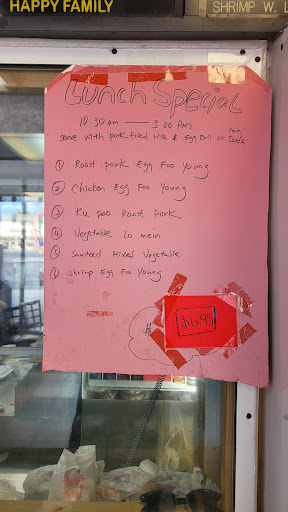 HAPPY FAMILY
SHRIMP W. L
Lunch Special
10:30 am — 3:00 Pm
Serve with pork fried rice & Egg Roll or can Soda
① Roast pork Egg Foo Young
② Chicken Egg Foo Young
③ Ku pao Roast Pork
④ Vegetable Lo mein
⑤ Sauteed Mixed Vegetable
⑥ Shrimp Egg Foo Young
$6.95